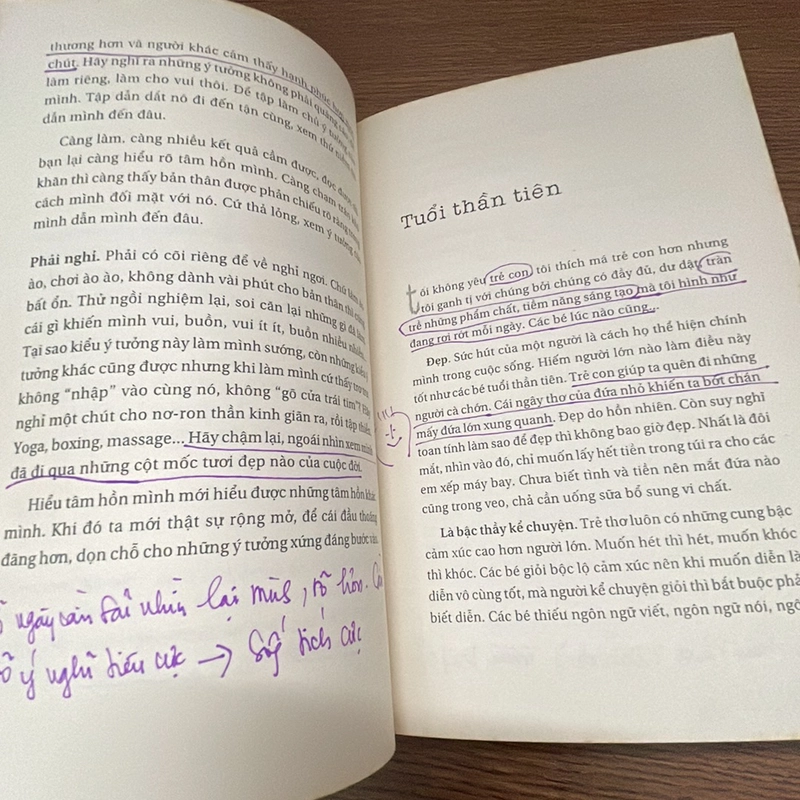 thương hơn và người khác cảm thấy hạnh phúc hơn
chút. Hãy nghĩ ra những ý tưởng không phải quảng cáo
làm riêng, làm cho vui thôi. Để tập làm chủ ý tưởng
mình. Tập dẫn dắt nó đi đến tận cùng, xem thử
dẫn mình đến đâu.
Càng làm, càng nhiều kết quả cầm được, đọc được
bạn lại càng hiểu rõ tâm hồn mình. Càng chạm trán
khăn thì càng thấy bản thân được phản chiếu rõ ràng
cách mình đối mặt với nó. Cứ thả lỏng, xem ý tưởng của
mình dẫn mình đến đâu.
Phải nghỉ. Phải có cõi riêng để về nghỉ ngơi. Chứ làm
ào, chơi ào ào, không dành vài phút cho bản thân thì
bất ổn. Thử ngồi nghiệm lại, soi cặn lại những gì đã làm,
cái gì khiến mình vui, buồn, vui ít ít, buồn nhiều
Tại sao kiểu ý tưởng này làm mình sướng, còn những kiểu ý
tưởng khác cũng được nhưng khi làm mình cứ thấy
không “nhập” vào cùng nó, không “gõ cửa trái tim”?
nghỉ một chút cho nơ-ron thần kinh giãn ra, rồi tập
Yoga, boxing, massage... Hãy chậm lại, ngoái nhìn xem mình
đã đi qua những cột mốc tươi đẹp nào của cuộc đời.
Hiểu tâm hồn mình mới hiểu được những tâm hồn khác
mình. Khi đó ta mới thật sự rộng mở, để cái đầu thoáng
đãng hơn, dọn chỗ cho những ý tưởng xứng đáng bước vào.
ngày cần nhìn lại mình, rõ hơn.
ý nghĩ tiêu cực → Số tích cực
Tuổi thần tiên
tôi không yêu trẻ con, tôi thích mà trẻ con hơn nhưng
tôi ganh tị với chúng bởi chúng có đầy đủ, dư dậy, tràn
trề những phẩm chất, tiềm năng sáng tạo mà tôi hình như
đang rơi rớt mỗi ngày. Các bé lúc nào cũng...
Đẹp. Sức hút của một người là cách họ thể hiện chính
mình trong cuộc sống. Hiếm người lớn nào làm điều này
tốt như các bé tuổi thần tiên. Trẻ con giúp ta quên đi những
người cà chớn. Cái ngây thơ của đứa nhỏ khiến ta bớt chán
mấy đứa lớn xung quanh. Đẹp do hồn nhiên. Còn suy nghĩ
toan tính làm sao để đẹp thì không bao giờ đẹp. Nhất là đôi
mắt, nhìn vào đó, chỉ muốn lấy hết tiền trong túi ra cho các
em xếp máy bay. Chưa biết tình và tiền nên mắt đứa nào
cũng trong veo, chả cần uống sữa bổ sung vi chất.
Là bậc thầy kể chuyện. Trẻ thơ luôn có những cung bậc
cảm xúc cao hơn người lớn. Muốn hét thì hét, muốn khóc
thì khóc. Các bé giỏi bộc lộ cảm xúc nên khi muốn diễn là
diễn vô cùng tốt, mà người kể chuyện giỏi thì bắt buộc phải
biết diễn. Các bé thiếu ngôn ngữ viết, ngôn ngữ nói, ngô